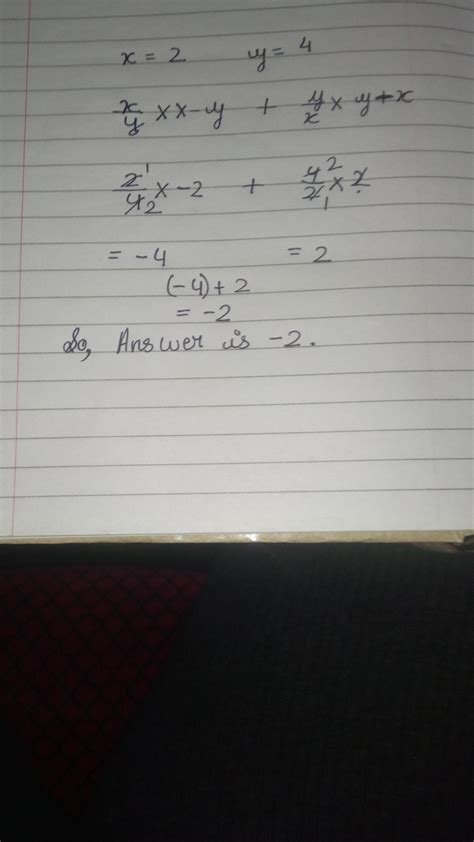 x = 2 y = 4
x/y × x - y + y/x × y - x
2/4 1 2 × -2 + 4/2 2 1 × 2
= -4 = 2
(-4) + 2
= -2
So, Answer is -2.